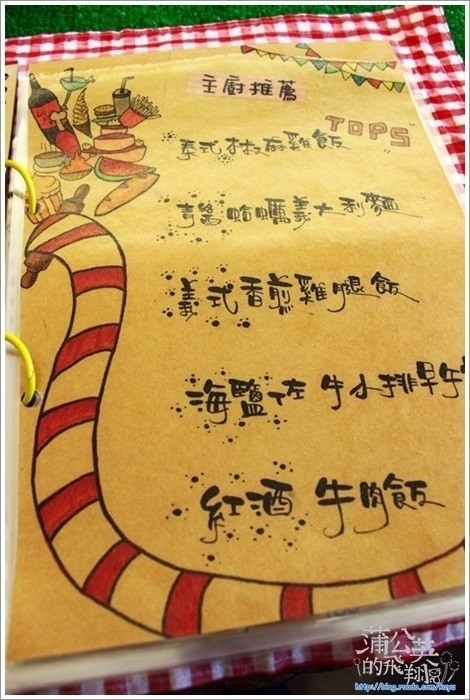 主廚推薦
TOPS
泰式椒麻雞飯
青醬蛤蠣義大利麵
義式香煎雞腿飯
海鹽佐牛小排早午
紅酒牛肉飯
蒲公英
的飛翔
http://blog.roodo.com/kuyu